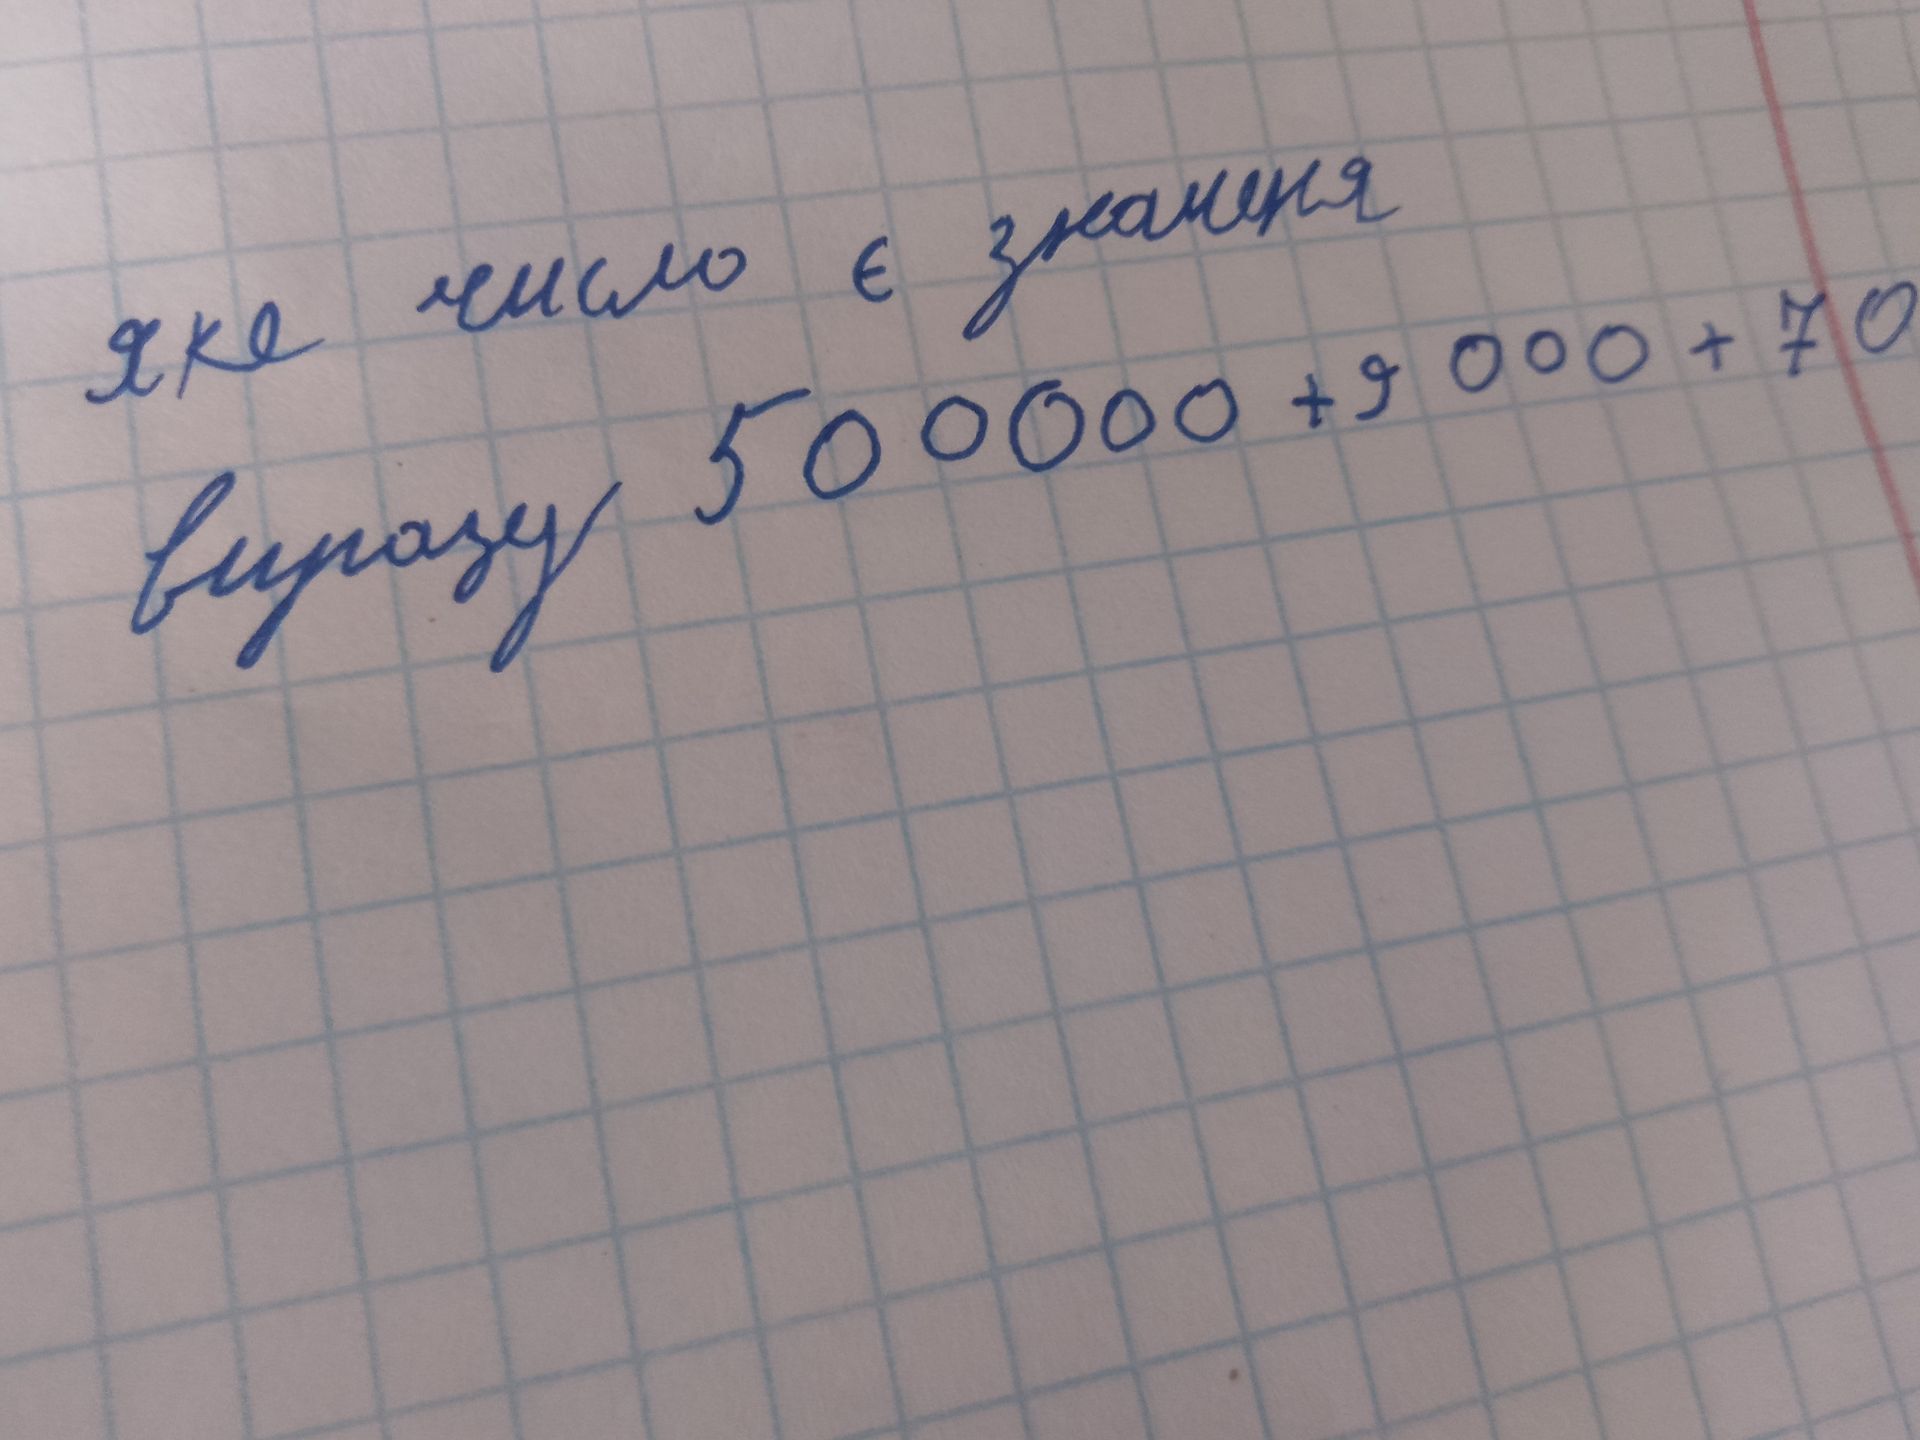 яке число є значеня
виразу 500000 + 9 000 + 70